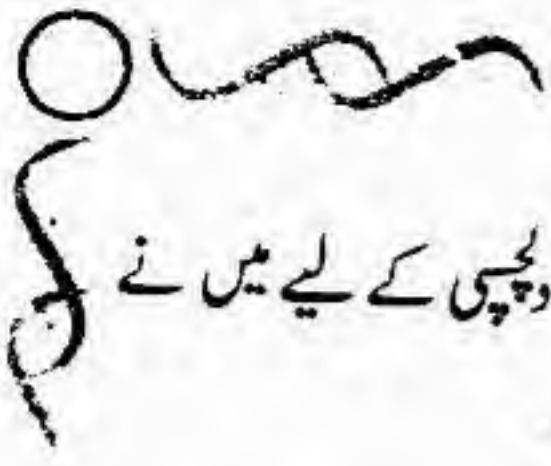 دلچسپی کے لیے میں نے